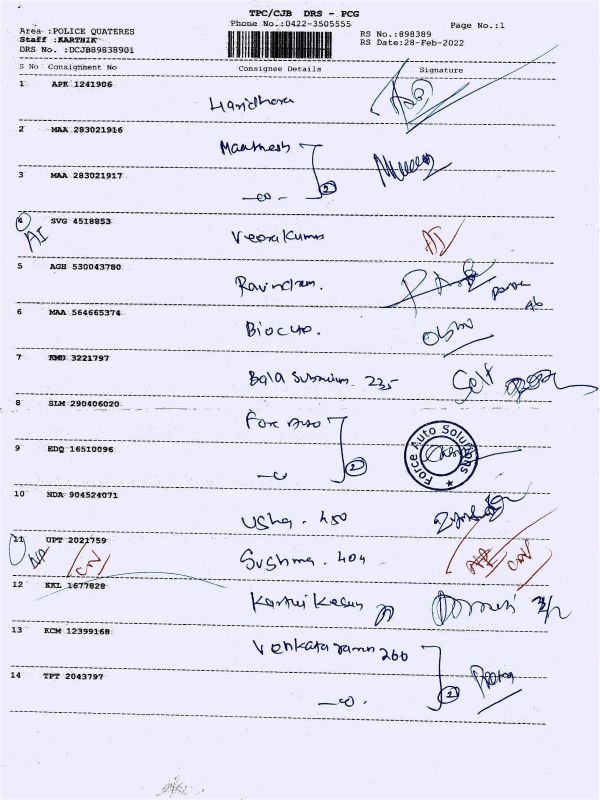 TPC/CJB DRS - PCG
Phone No.:0422-3505555
Page No.:1
Area :POLICE QUATERES
Staff :KARTHIK
DRS No. :DCJB89838901
RS No.:898389
RS Date:28-Feb-2022
S No Consignment No Consignee Details Signature
1 APK 1241906
Haridhara
2 MAA 283021916
Manthesh
3 MAA 283021917
2
4 SVG 4518853
AI
Veerakumar
5 AGH 530043780
Ravindran.
6 MAA 564665374
7 KMU 3221797
235
Self
8 SLM 290406020
Force Auto
9 EDQ 16510096
2
Force Auto Solutions
10 NDA 904524071
Usha. 450
11 UPT 2021759
Sushma. 404
12 KKL 1677828
13 KCM 12399168
Venkataraman 260
14 TPT 2043797
2